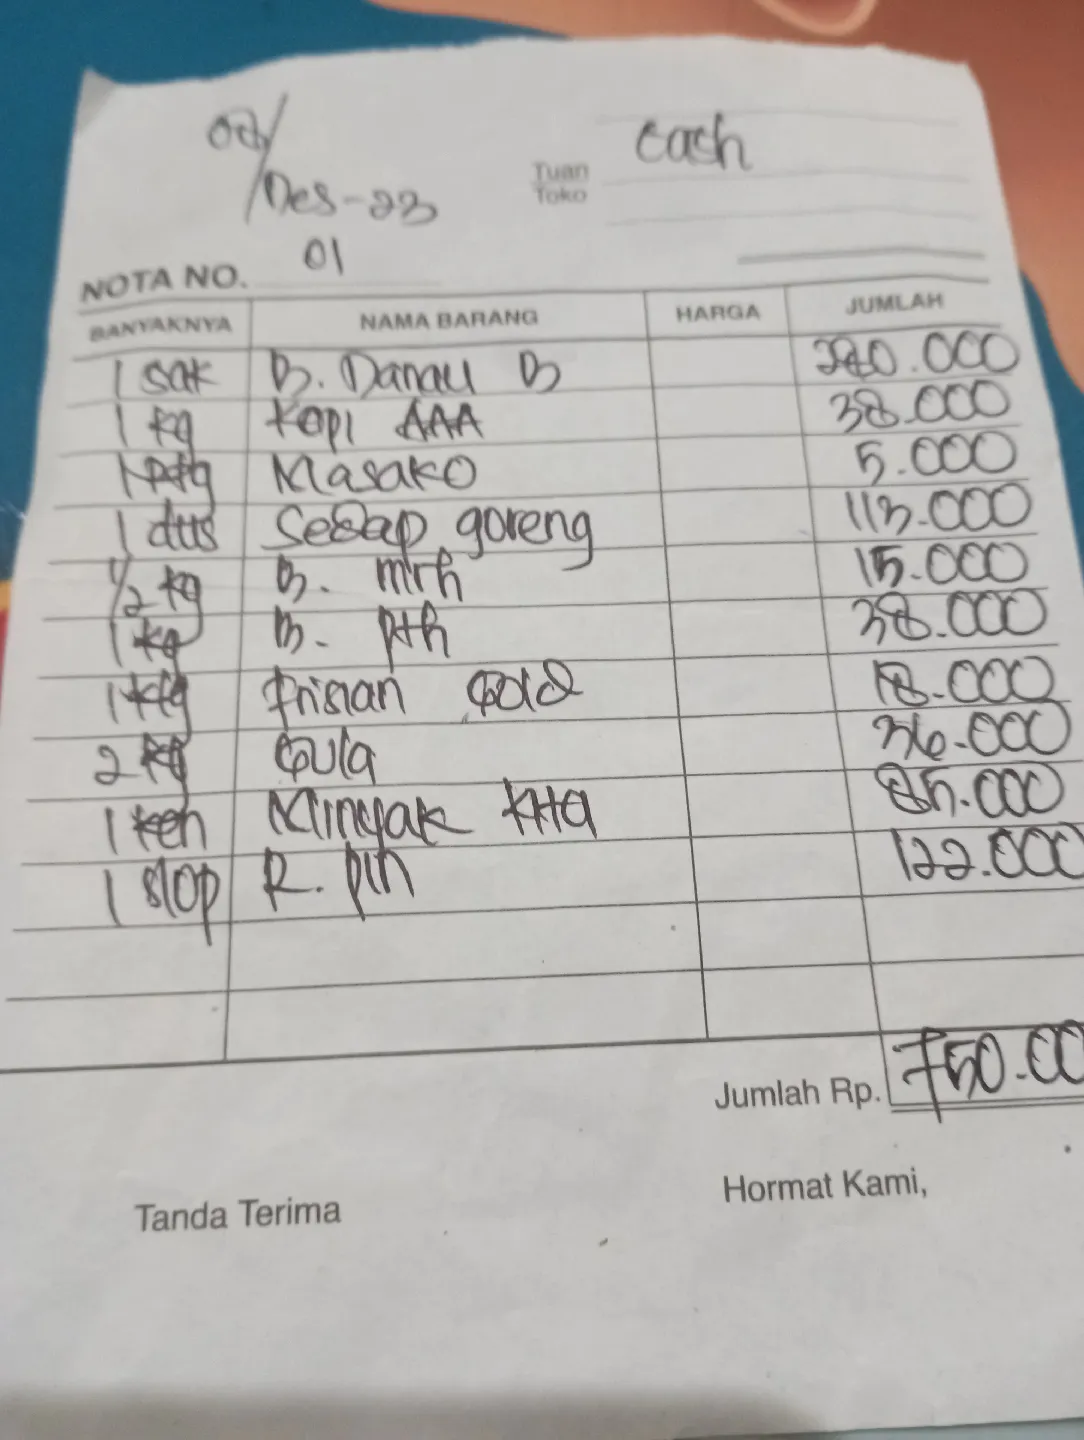 Des-23
cash
Tuan
Toko
NOTA NO. 01
BANYAKNYA NAMA BARANG HARGA JUMLAH
1 sak B. Danau B 280.000
1 kg Kopi AAA 38.000
1 Masako 5.000
1 dus Sedap goreng 113.000
1/2 kg B. mrh 15.000
1 kg B. pth 38.000
1 Frisian Gold 18.000
2 kg Gula 36.000
1 ken Minyak KHQ 85.000
1 slop R. pin 122.000
Jumlah Rp. 750.00
Tanda Terima Hormat Kami,